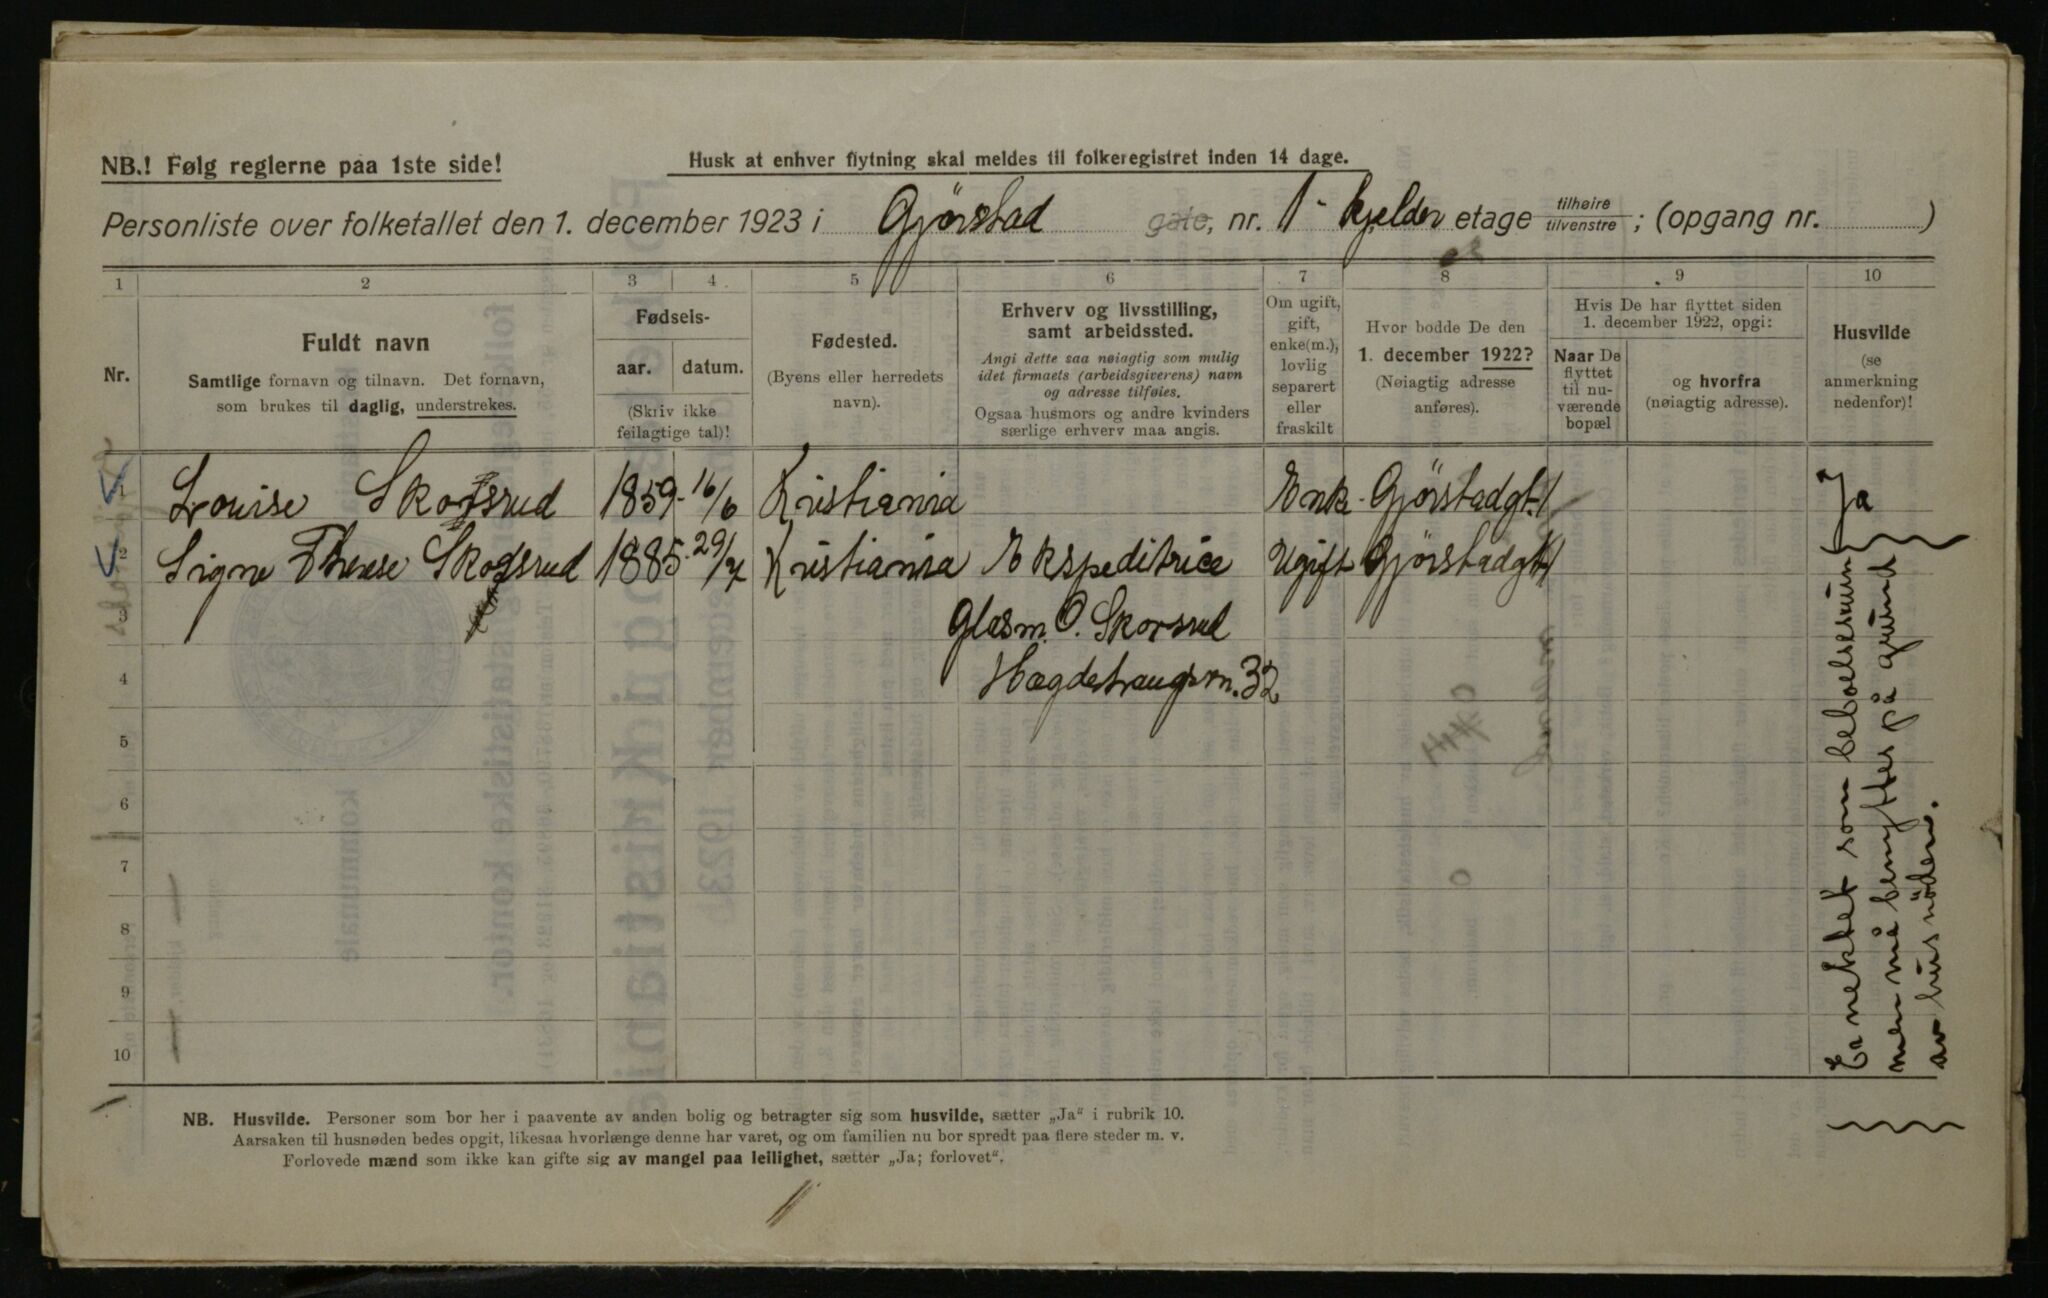 NB.! Følg reglerne paa 1ste side!
Husk at enhver flytning skal meldes til folkeregistret inden 14 dage.
Personliste over folketallet den 1. december 1923 i Gjørstad gate, nr. 1 - kjelder etage tilhøire tilvenstre ; (opgang nr. )
1 2 3 4 5 6 7 8 9 10
Nr.
Fuldt navn
Samtlige fornavn og tilnavn. Det fornavn,
som brukes til daglig, understrekes.
Fødsels-
aar. datum.
(Skriv ikke
feilagtige tal)!
Fødested.
(Byens eller herredets
navn).
Erhverv og livsstilling,
samt arbeidssted.
Angi dette saa nøiagtig som mulig
idet firmaets (arbeidsgiverens) navn
og adresse tilføies.
Ogsaa husmors og andre kvinders
særlige erhverv maa angis.
Om ugift,
gift,
enke(m.),
lovlig
separert
eller
fraskilt
Hvor bodde De den
1. december 1922?
(Nøiagtig adresse
anføres).
Hvis De har flyttet siden
1. december 1922, opgi:
Naar De
flyttet
til nu-
værende
bopæl
og hvorfra
(nøiagtig adresse).
Husvilde
(se
anmerkning
nedenfor)!
1 Louise Skorsrud 1859 16/6 Kristiania Enke Gjørstadgt. 1 Ja
2 Signe Therese Skorsrud 1885 29/7 Kristiania Ekspeditrice Ugift Gjørstadgt 1
3 Glasm. O. Skorsrud
4 Hægdehaugsvn. 32
5
6
7
8
9
10
Er nektet som beboelsesrum
men må benyttes på grund
av husnøden.
NB. Husvilde. Personer som bor her i paavente av anden bolig og betragter sig som husvilde, sætter „Ja" i rubrik 10.
Aarsaken til husnøden bedes opgit, likesaa hvorlænge denne har varet, og om familien nu bor spredt paa flere steder m. v.
Forlovede mænd som ikke kan gifte sig av mangel paa leilighet, sætter „Ja; forlovet".